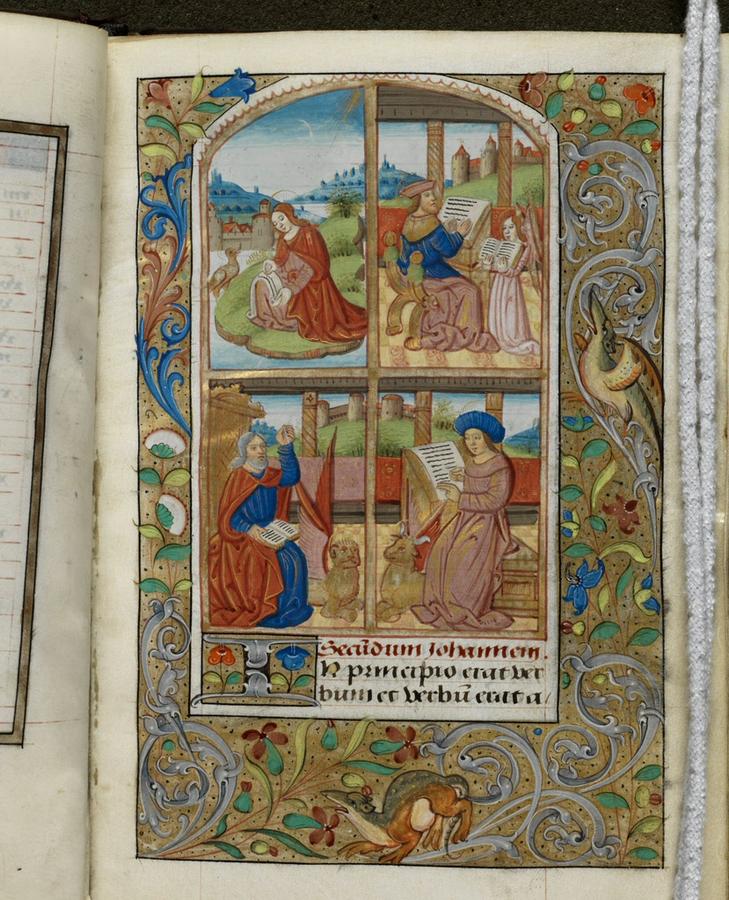 Secūdum Johannem.
IN principio erat ver
bum et verbū erat a